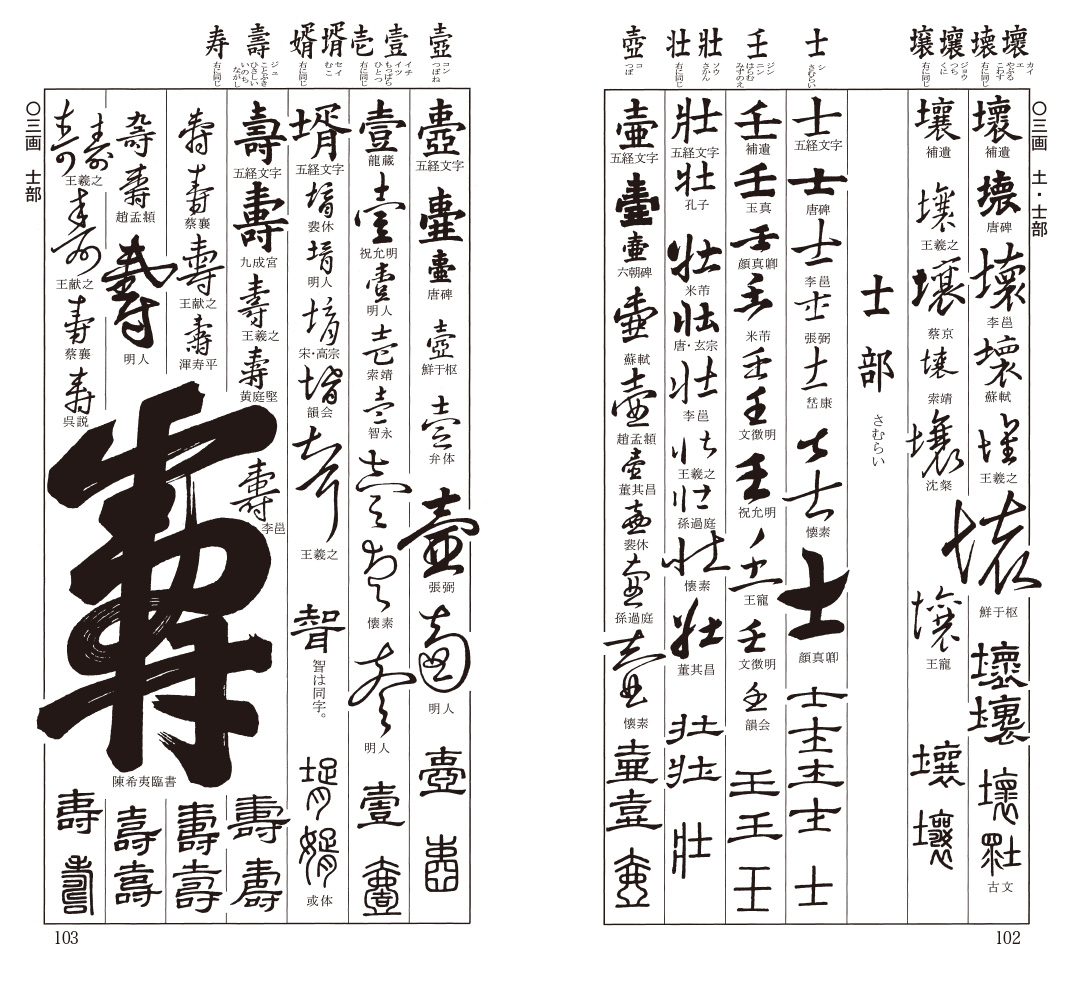 〇三画 土・士部
壞 カイ エ やぶる こわす
壊 右に同じ
壤 ジョウ つち くに
壌 右に同じ
士 シ さむらい
壬 ジン ニン はらむ みずのえ
壯 ソウ さかん
壮 右に同じ
壺 コ つぼ
壞 補遺
壞 唐碑
壞 李邕
壞 蘇軾
壞 王羲之
壞 鮮于枢
壞
壞
壞
古文
壤 補遺
壤 王羲之
壤 蔡京
壤 索靖
壤 沈粲
壤 王寵
壤
壤
士部 さむらい
士 五経文字
士 唐碑
士 李邕
士 張弼
士 嵆康
士
士 懐素
士 顔真卿
士
士
士
士
士
壬 補遺
壬 玉真
壬 顔真卿
壬 米芾
壬
壬 文徴明
壬 祝允明
壬 王寵
壬 文徴明
壬 韻会
壬
壬
壬
壯 五経文字
壯 孔子
壯 米芾
壯 唐・玄宗
壯 李邕
壯 王羲之
壯 孫過庭
壯 懐素
壯 董其昌
壯
壯
壯
壺 五経文字
壺
壺 六朝碑
壺 蘇軾
壺 趙孟頫
壺 董其昌
壺 裴休
壺 孫過庭
壺 懐素
壺
壺
壺
102
壼 コン つぼね
壹 イチ イツ もっぱら ひとつ
壱 右に同じ
壻 セイ むこ
婿 右に同じ
壽 ジュ ことぶき ひさしい いのち ながし
寿 右に同じ
壼 五経文字
壼
壼 唐碑
壼 鮮于枢
壼 弁体
壼 張弼
壼 明人
壼
壼
壹 龍蔵
壹 祝允明
壹 明人
壹 索靖
壹 智永
壹
壹 懐素
壹 明人
壹
壹
壻 五経文字
壻 裴休
壻 明人
壻 宋・高宗
壻 韻会
壻 王羲之
聟は同字。
壻
婿 或体
壽 五経文字
壽 九成宮
壽 王羲之
壽 黄庭堅
壽 李邕
壽
壽
壽
壽 蔡襄
壽 王献之
壽 渾寿平
壽
壽
壽
壽 趙孟頫
壽 明人
壽 陳希夷臨書
壽
壽
壽
壽 王羲之
壽 王献之
壽 蔡襄
壽 呉説
壽
壽
〇三画 士部
103